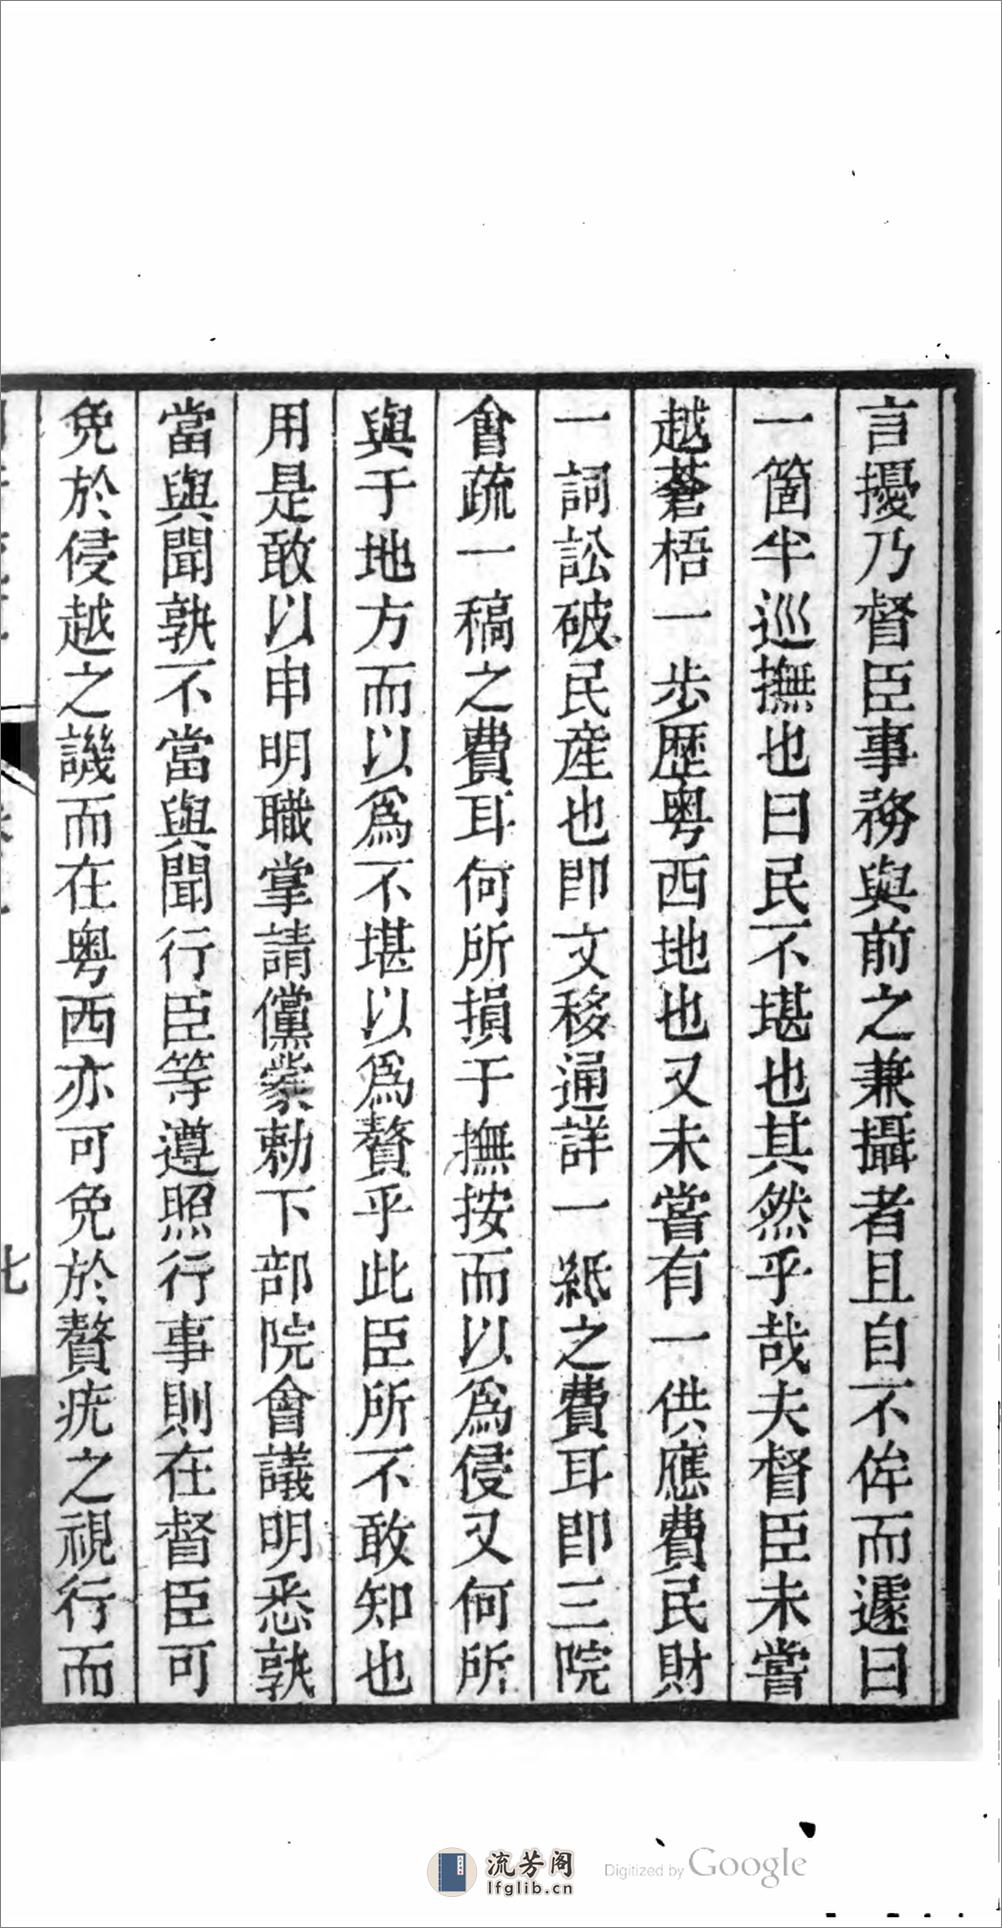 言擾乃督臣事務與前之兼攝者且自不侔而遽曰
一箇半巡撫也曰民不堪也其然乎哉夫督臣未嘗
越蒼梧一步歷粤西地也又未嘗有一供應費民財
一詞訟破民産也即文移通詳一紙之費耳即三院
會疏一稿之費耳何所損于撫按而以爲侵又何所
與于地方而以爲不堪以爲贅乎此臣所不敢知也
用是敢以申明職掌請儻蒙勅下部院會議明悉孰
當與聞孰不當與聞行臣等遵照行事則在督臣可
免於侵越之譏而在粤西亦可免於贅疣之視行而
流芳阁
lfglib.cn
Digitized by Google